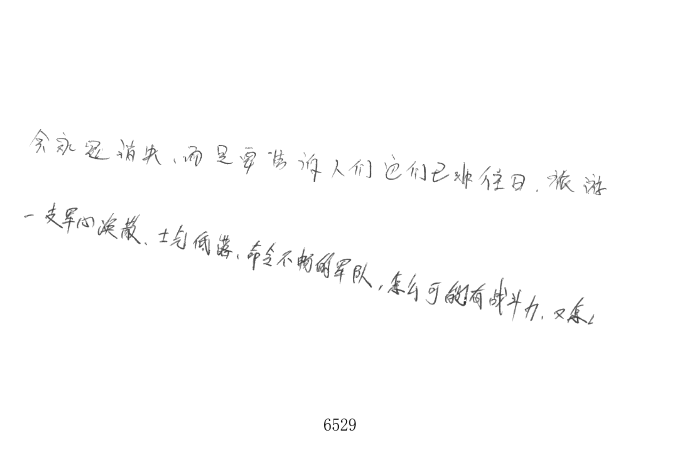 会永远消失,而是要告诉人们它们已非往日.旅游
一支军心涣散、士气低落、命令不畅的军队,怎么可能有战斗力.又怎么
6529